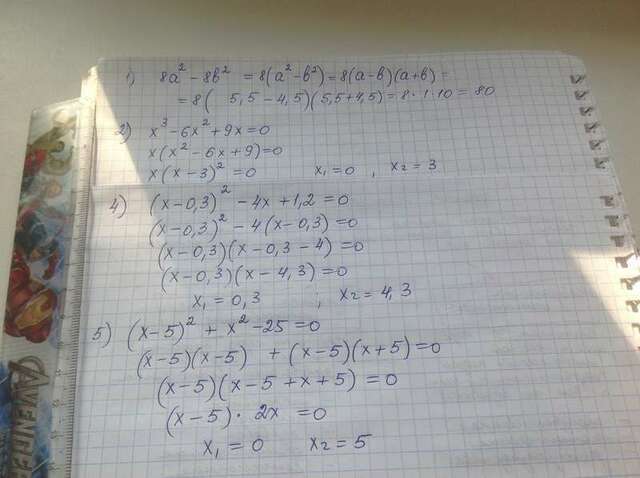 1) 8a² - 8в² = 8(a² - в²) = 8(a-в)(a+в) =
= 8( 5,5 - 4,5)(5,5+4,5) = 8·1·10 = 80
2) x³ - 6x² + 9x = 0
x(x² - 6x + 9) = 0
x(x - 3)² = 0 x₁ = 0 , x₂ = 3
4) (x - 0,3)² - 4x + 1,2 = 0
(x - 0,3)² - 4(x - 0,3) = 0
(x - 0,3)(x - 0,3 - 4) = 0
(x - 0,3)(x - 4,3) = 0
x₁ = 0,3 ; x₂ = 4,3
5) (x - 5)² + x² - 25 = 0
(x - 5)(x - 5) + (x - 5)(x + 5) = 0
(x - 5)(x - 5 + x + 5) = 0
(x - 5) · 2x = 0
x₁ = 0 x₂ = 5